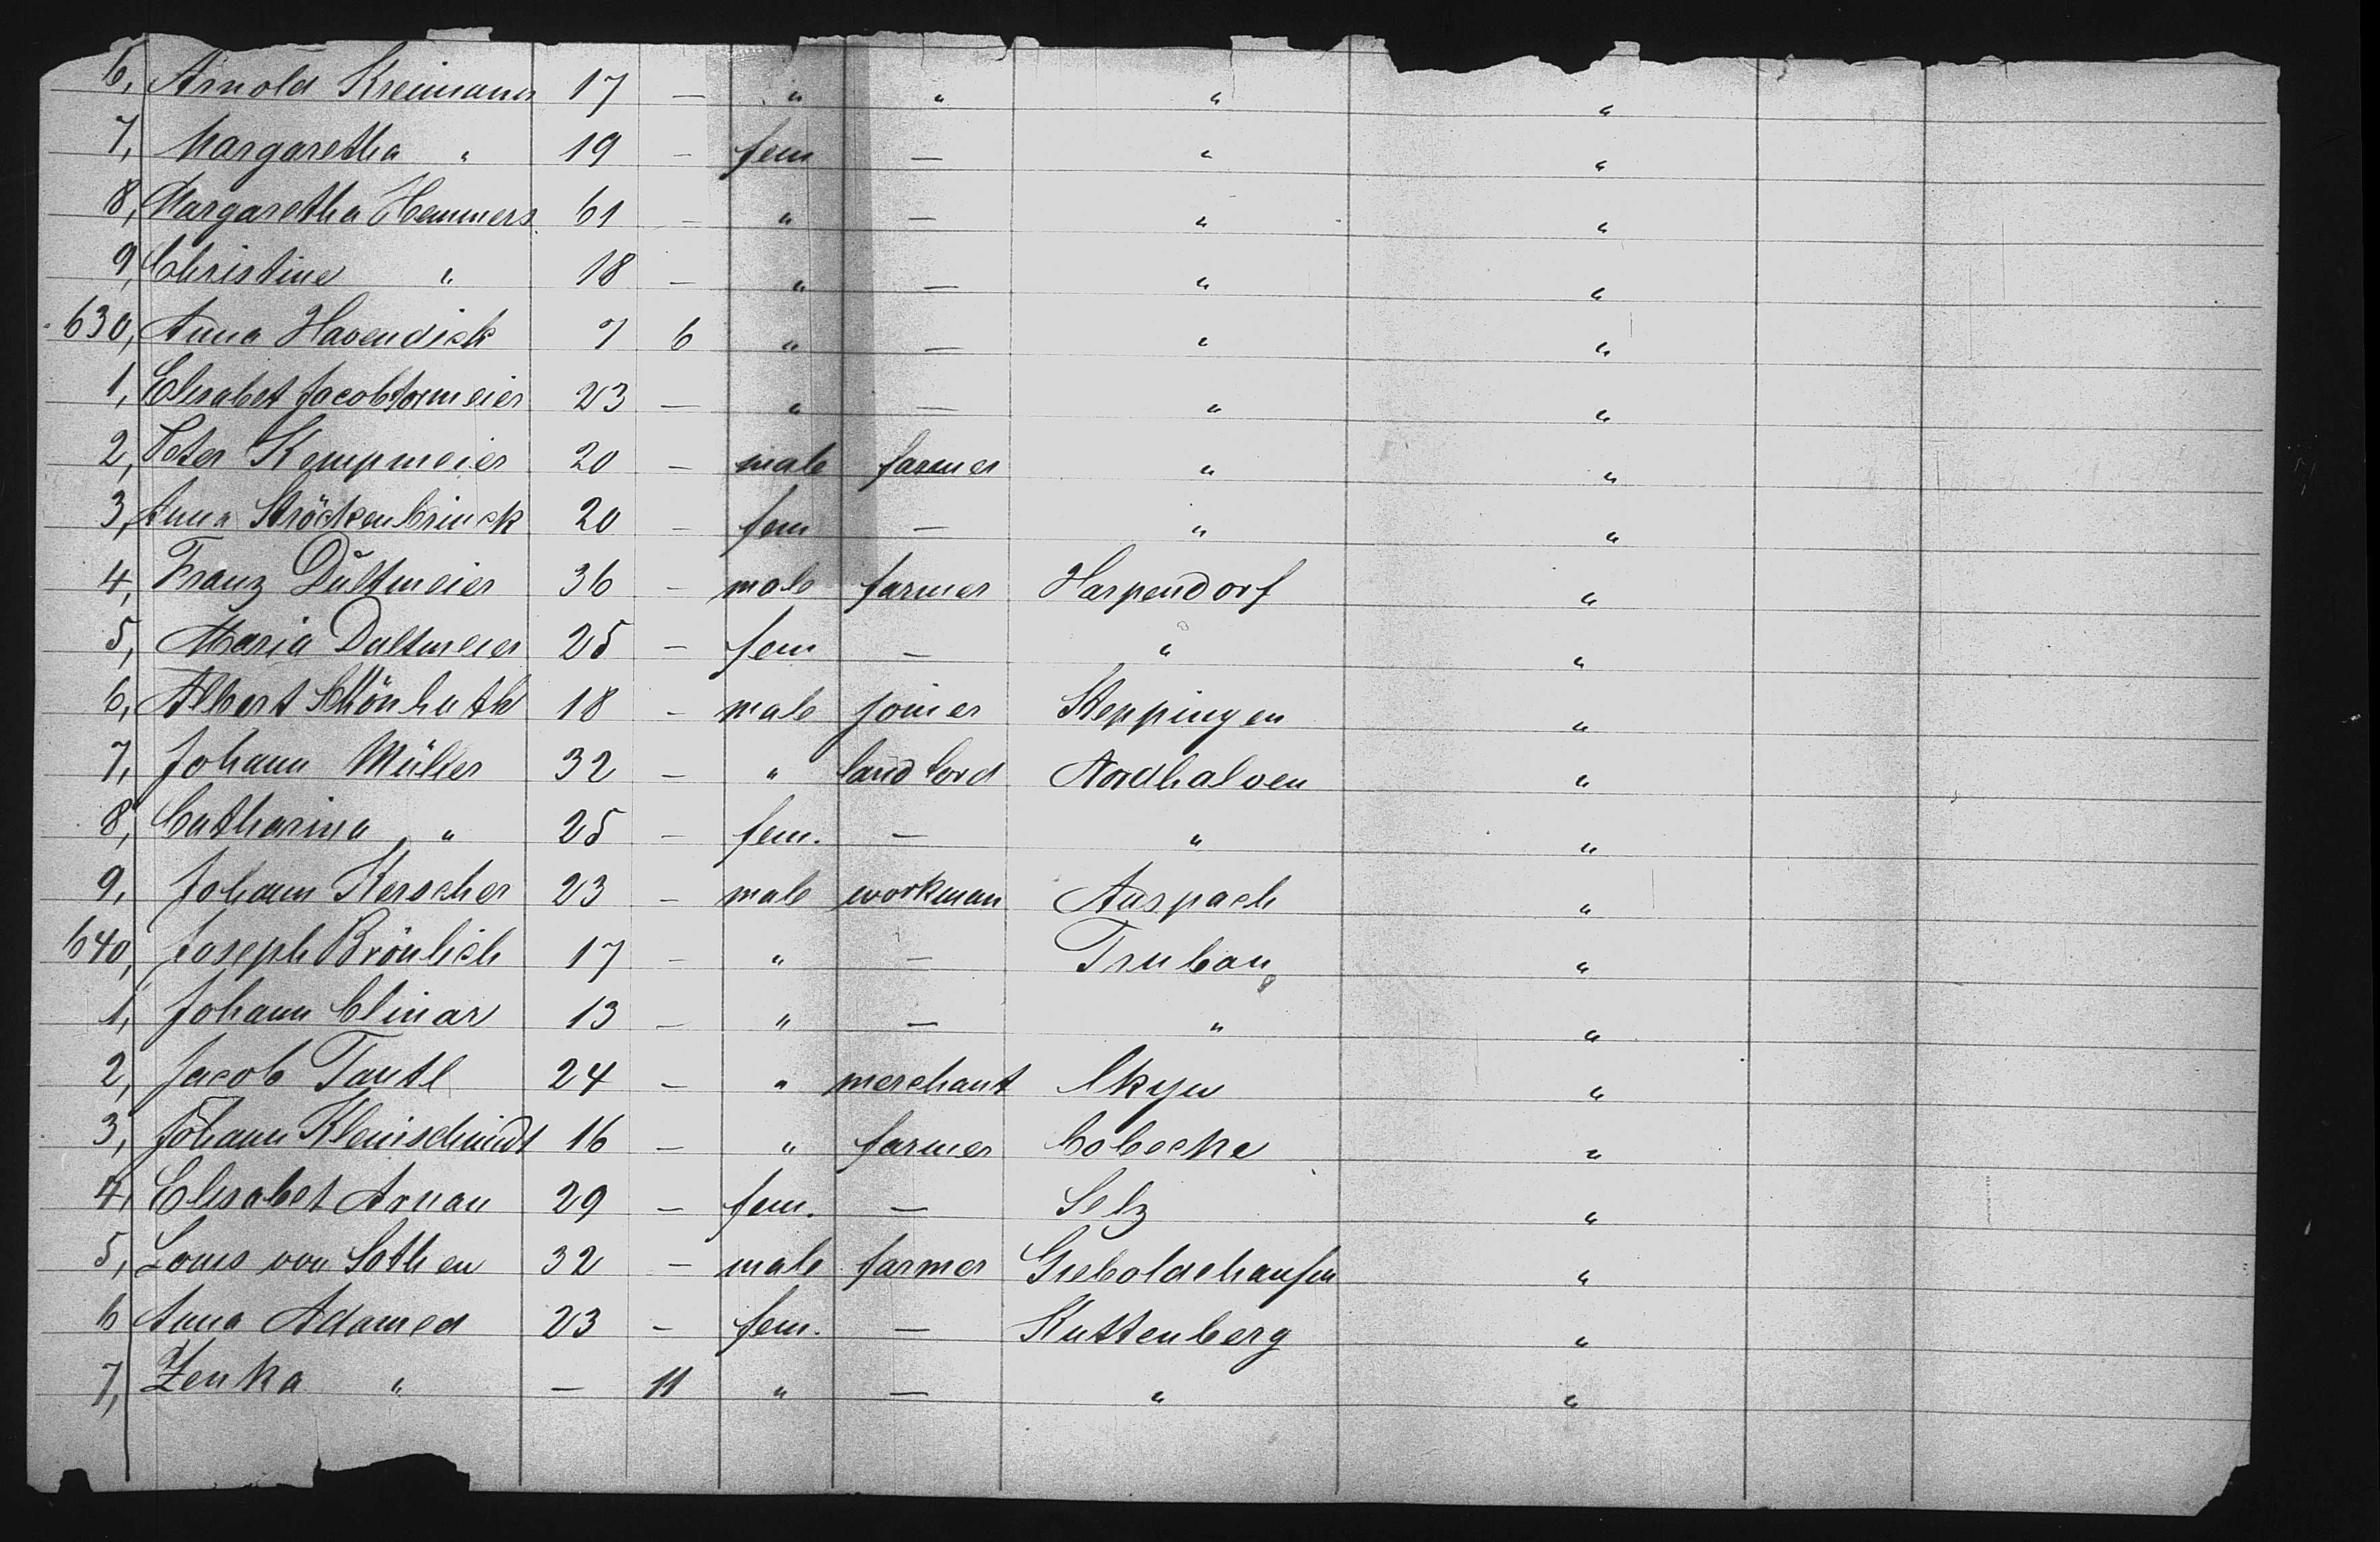 6, Arnold Kreimann 17 — " " " "
7, Margaretha " 19 — fem — " "
8, Margaretha Hemmers 61 — " — " "
9, Christine " 18 — " — " "
630, Anna Havendick 7 6 " — " "
1, Elisabet 23 — " — " "
2, Peter Kempmeier 20 — male farmer " "
3, Anna Ströckenbrinck 20 — fem — " "
4, Franz Dultmeier 36 — male farmer Harpendorf "
5, Maria Dultmeier 25 — fem — " "
6, Albert Schönhuth 18 — male joiner Steppingen "
7, Johann Müller 32 — " landlord Nordhalven "
8, Catharina " 25 — fem. — " "
9, Johann Kerscher 23 — male workman Anspach "
640, Joseph Brönlich 17 — " — Trubau "
1, Johann Clinar 13 — " — " "
2, Jacob Tautl 24 — " merchant "
3, Johann Kleinschmidt 16 — " farmer Cobecke "
4, Elisabet Arnau 29 — fem. — Selz "
5, Louis von Sothen 32 — male farmer Gieboldehausen "
6 Anna Adamed 23 — fem. — Kuttenberg "
7, Zenka " — 11 " — " "